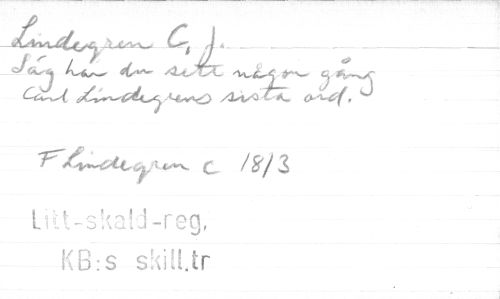 Lindegren C, J.
Säg har du sett någon gång
Carl Lindegrens sista ord.
F Lindegren C 18/3
Litt-skald-reg,
KB:s skill.tr